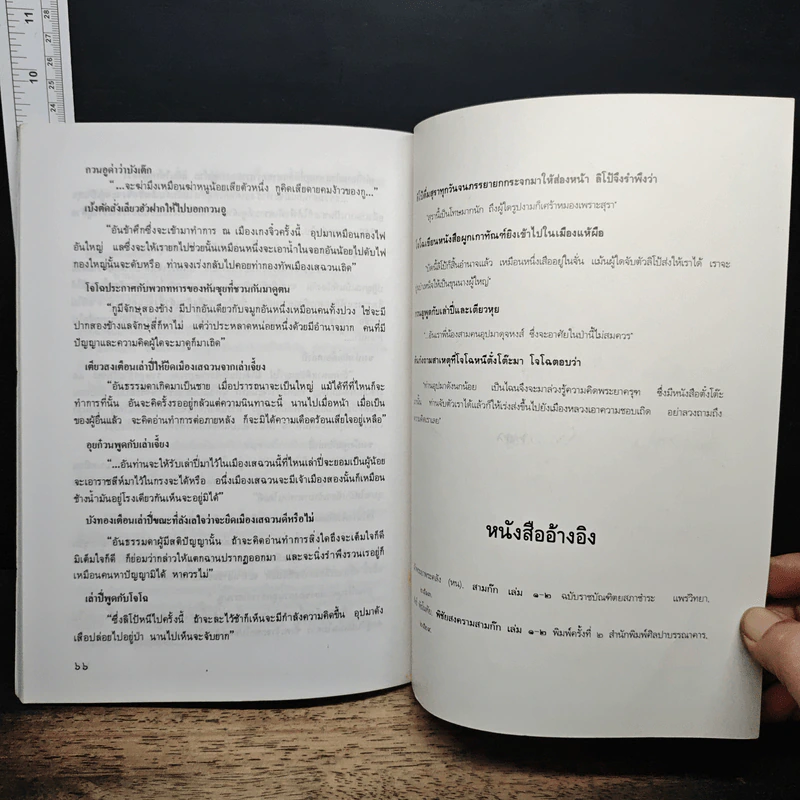 11
28
27
26
10
25
24
กวนอูด่าว่าบังเต๊ก
"...จะฆ่ามึงเหมือนฆ่าหนูน้อยเสียตัวหนึ่ง กูคิดเสียดายคมง้าวของกู..."
เบ้งตัดสั่งเลียวฮัวฝากให้ไปบอกกวนอู
"อันข้าศึกซึ่งจะเข้ามาทำการ ณ เมืองเกงจิ๋วครั้งนี้ อุปมาเหมือนกองไฟ
อันใหญ่ แลซึ่งจะให้เรายกไปช่วยนั้นเหมือนหนึ่งจะเอาน้ำในจอกอันน้อยไปดับไฟ
กองใหญ่นั้นจะดับหรือ ท่านจงเร่งกลับไปคอยท่ากองทัพเมืองเสฉวนเถิด"
โจโฉประกาศกับพวกทหารของหันซุยที่ชวนกันมาดูตน
"กูมีจักษุสองข้าง มีปากอันเดียวกับจมูกอันหนึ่งเหมือนคนทั้งปวง ใช่จะมี
ปากสองข้างแลจักษุสี่ก็หาไม่ แต่ว่าประหลาดหน่อยหนึ่งด้วยมีอำนาจมาก คนที่มี
ปัญญาและความคิดผู้ใดจะมาดูก็มาเถิด"
เตียวสงเตือนเล่าปี่ให้ยึดเมืองเสฉวนจากเล่าเจี้ยง
"อันธรรมดาเกิดมาเป็นชาย เมื่อปรารถนาจะเป็นใหญ่ แม้ได้ทีที่ไหนก็จะ
ทำการที่นั้น อันจะคิดรั้งรออยู่กลัวแต่ความนินทาฉะนี้ นานไปเมื่อหน้า เมื่อเป็น
ของผู้อื่นแล้ว จะคิดอ่านทำการต่อภายหลัง ก็จะมิได้ความเดือดร้อนเสียใจอยู่เหลือ"
อุยก๋วนพูดกับเล่าเจี้ยง
"...อันท่านจะให้รับเล่าปี่มาไว้ในเมืองเสฉวนนี้ที่ไหนเล่าปี่จะยอมเป็นผู้น้อย
จะเอาราชสีห์มาไว้ในกรงจะได้หรือ อนึ่งเมืองเสฉวนจะมีเจ้าเมืองสองนั้นก็เหมือน
ช้างน้ำมันอยู่โรงเดียวกันเห็นจะอยู่มิได้"
บังทองเตือนเล่าปี่ขณะที่ลังเลใจว่าจะยึดเมืองเสฉวนดีหรือไม่
"อันธรรมดาผู้มีสติปัญญานั้น ถ้าจะคิดอ่านทำการสิ่งใดถึงจะเต็มใจก็ดี
มิเต็มใจก็ดี ก็ย่อมว่ากล่าวให้แตกฉานปรากฏออกมา และจะนิ่งรำพึงรวนเรอยู่ก็
เหมือนคนหาปัญญามิได้ หาควรไม่"
เล่าปี่พูดกับโจโฉ
"ซึ่งลิโป้หนีไปครั้งนี้ ถ้าจะละไว้ช้าก็เห็นจะมีกำลังความคิดขึ้น อุปมาดัง
เสือปล่อยไปอยู่ป่า นานไปเห็นจะจับยาก"
๖๖
ดื่มสุราทุกวันจนภรรยายกกระจกมาให้ส่องหน้า ลิโป้จึงรำพึงว่า
"สุรานี้เป็นโทษมากนัก ถึงผู้ใดรูปงามก็เศร้าหมองเพราะสุรา"
เขียนหนังสือผูกเกาทัณฑ์ยิงเข้าไปในเมืองแห้ผือ
"บัดนี้ลิโป้ก็สิ้นอำนาจแล้ว เหมือนหนึ่งเสืออยู่ในจั่น แม้นผู้ใดจับตัวลิโป้ส่งให้เราได้ เราจะ
ให้เป็นขุนนางผู้ใหญ่"
พูดกับเล่าปี่และเตียวหุย
อันเราพี่น้องสามคนอุปมาดุจหงส์ ซึ่งจะอาศัยในป่านี้ไม่สมควร"
ถามสาเหตุที่โจโฉหนีตั๋งโต๊ะมา โจโฉตอบว่า
"ท่านอุปมาดังนกน้อย เป็นไฉนจึงจะมาล่วงรู้ความคิดพระยาครุฑ ซึ่งมีหนังสือตั๋งโต๊ะ
นั้น ท่านจับตัวเราได้แล้วก็ให้เร่งส่งขึ้นไปยังเมืองหลวงเอาความชอบเถิด อย่าลวงถามถึง
ความคิดเราเลย"
หนังสืออ้างอิง
(หน). สามก๊ก เล่ม ๑-๒ ฉบับราชบัณฑิตยสภาชำระ แพร่วิทยา.
พิชัยสงครามสามก๊ก เล่ม ๑-๒ พิมพ์ครั้งที่ ๒ สำนักพิมพ์ศิลปาบรรณาคาร.